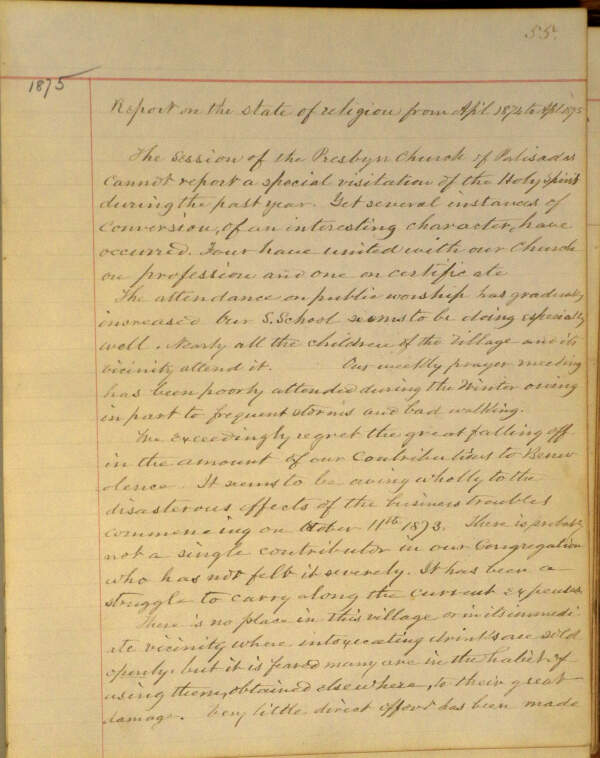 55.
1875
Report on the state of religion from Apl. 1874 to Apl 1875
The Session of the Presbyn Church of Palisades
cannot report a special visitation of the Holy Spirit
during the past year. Yet several instances of
conversion, of an interesting character, have
occurred. Four have united with our Church
on profession and one on certificate
The attendance on public worship has gradually
increased Our S. School seems to be doing especially
well. Nearly all the children of the Village and its
vicinity attend it. Our weekly prayer meeting
has been poorly attended during the Winter owing
in part to frequent storms and bad walking.
We exceedingly regret the great falling off
in the amount of our Contributions to Benev
olence. It seems to be owing wholly to the
disastrous effects of the business troubles
commencing on October 11th 1873. There is probably
not a single contributor in our Congregation
who has not felt it severely. It has been a
struggle to carry along the current expenses.
There is no place in this village or in its immedi
ate vicinity where intoxicating drinks are sold
openly. but it is feared many are in the habit of
using them, obtained elsewhere, to their great
damage. Very little direct effort has been made